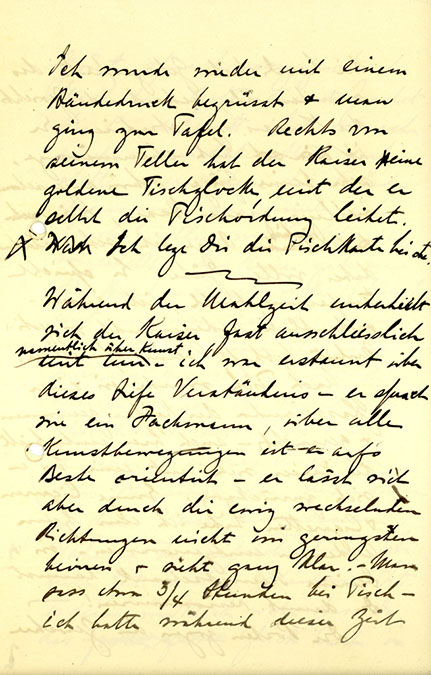 Ich wurde wieder mit einem
Händedruck begrüsst & man
ging zur Tafel. Rechts von
seinem Teller hat der Kaiser eine
goldene Tischglocke, mit der er
selbst die Tischordnung leitet.
Ich lege Dir die Tischkarte bei
Während der Mahlzeit unterhielt
sich der Kaiser fast ausschliesslich
namentlich über Kunst
mit mir - ich war erstaunt über
dieses tiefe Verständnis - er sprach
wie ein Fachmann, über alle
Kunstbewegungen ist er aufs
Beste orientirt - er lässt sich
aber durch die ewig wechselnden
Richtungen nicht im geringsten
beirren & sieht ganz klar. - Man
sass etwa 3/4 Stunden bei Tisch -
ich hatte während dieser Zeit